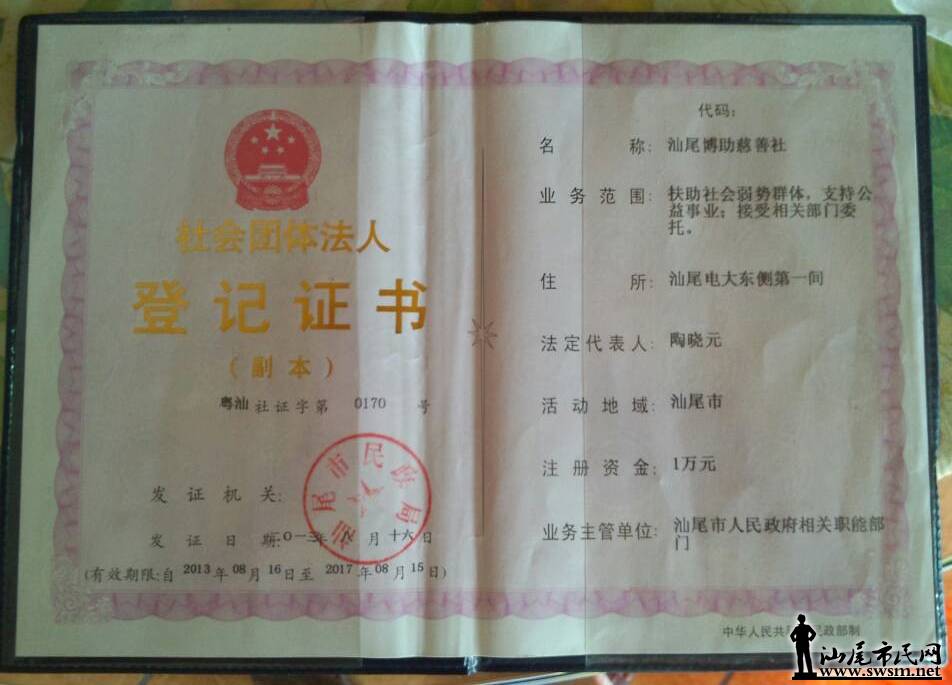 社会团体法人
登记证书
(副本)
粤汕社证字第 0170 号
汕尾市民政局
发证机关:
发证日期:二〇一三年八月十六日
(有效期限:自2013年08月16日至2017年08月15日)
代码:
名称:汕尾博助慈善社
业务范围:扶助社会弱势群体，支持公
益事业；接受相关部门委
托。
住所:汕尾电大东侧第一间
法定代表人:陶晓元
活动地域:汕尾市
注册资金:1万元
业务主管单位:汕尾市人民政府相关职能部
门
中华人民共和国民政部制
汕尾市民网
www.swsm.net